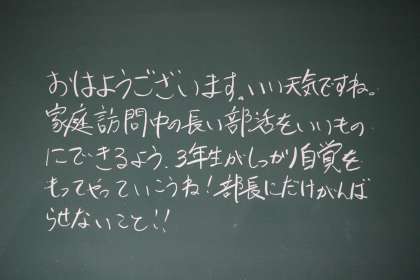 おはようございます。いい天気ですね。
家庭訪問中の長い部活をいいもの
にできるよう、3年生がしっかり自覚を
もってやっていこうね!部長にだけがんば
らせないこと!!